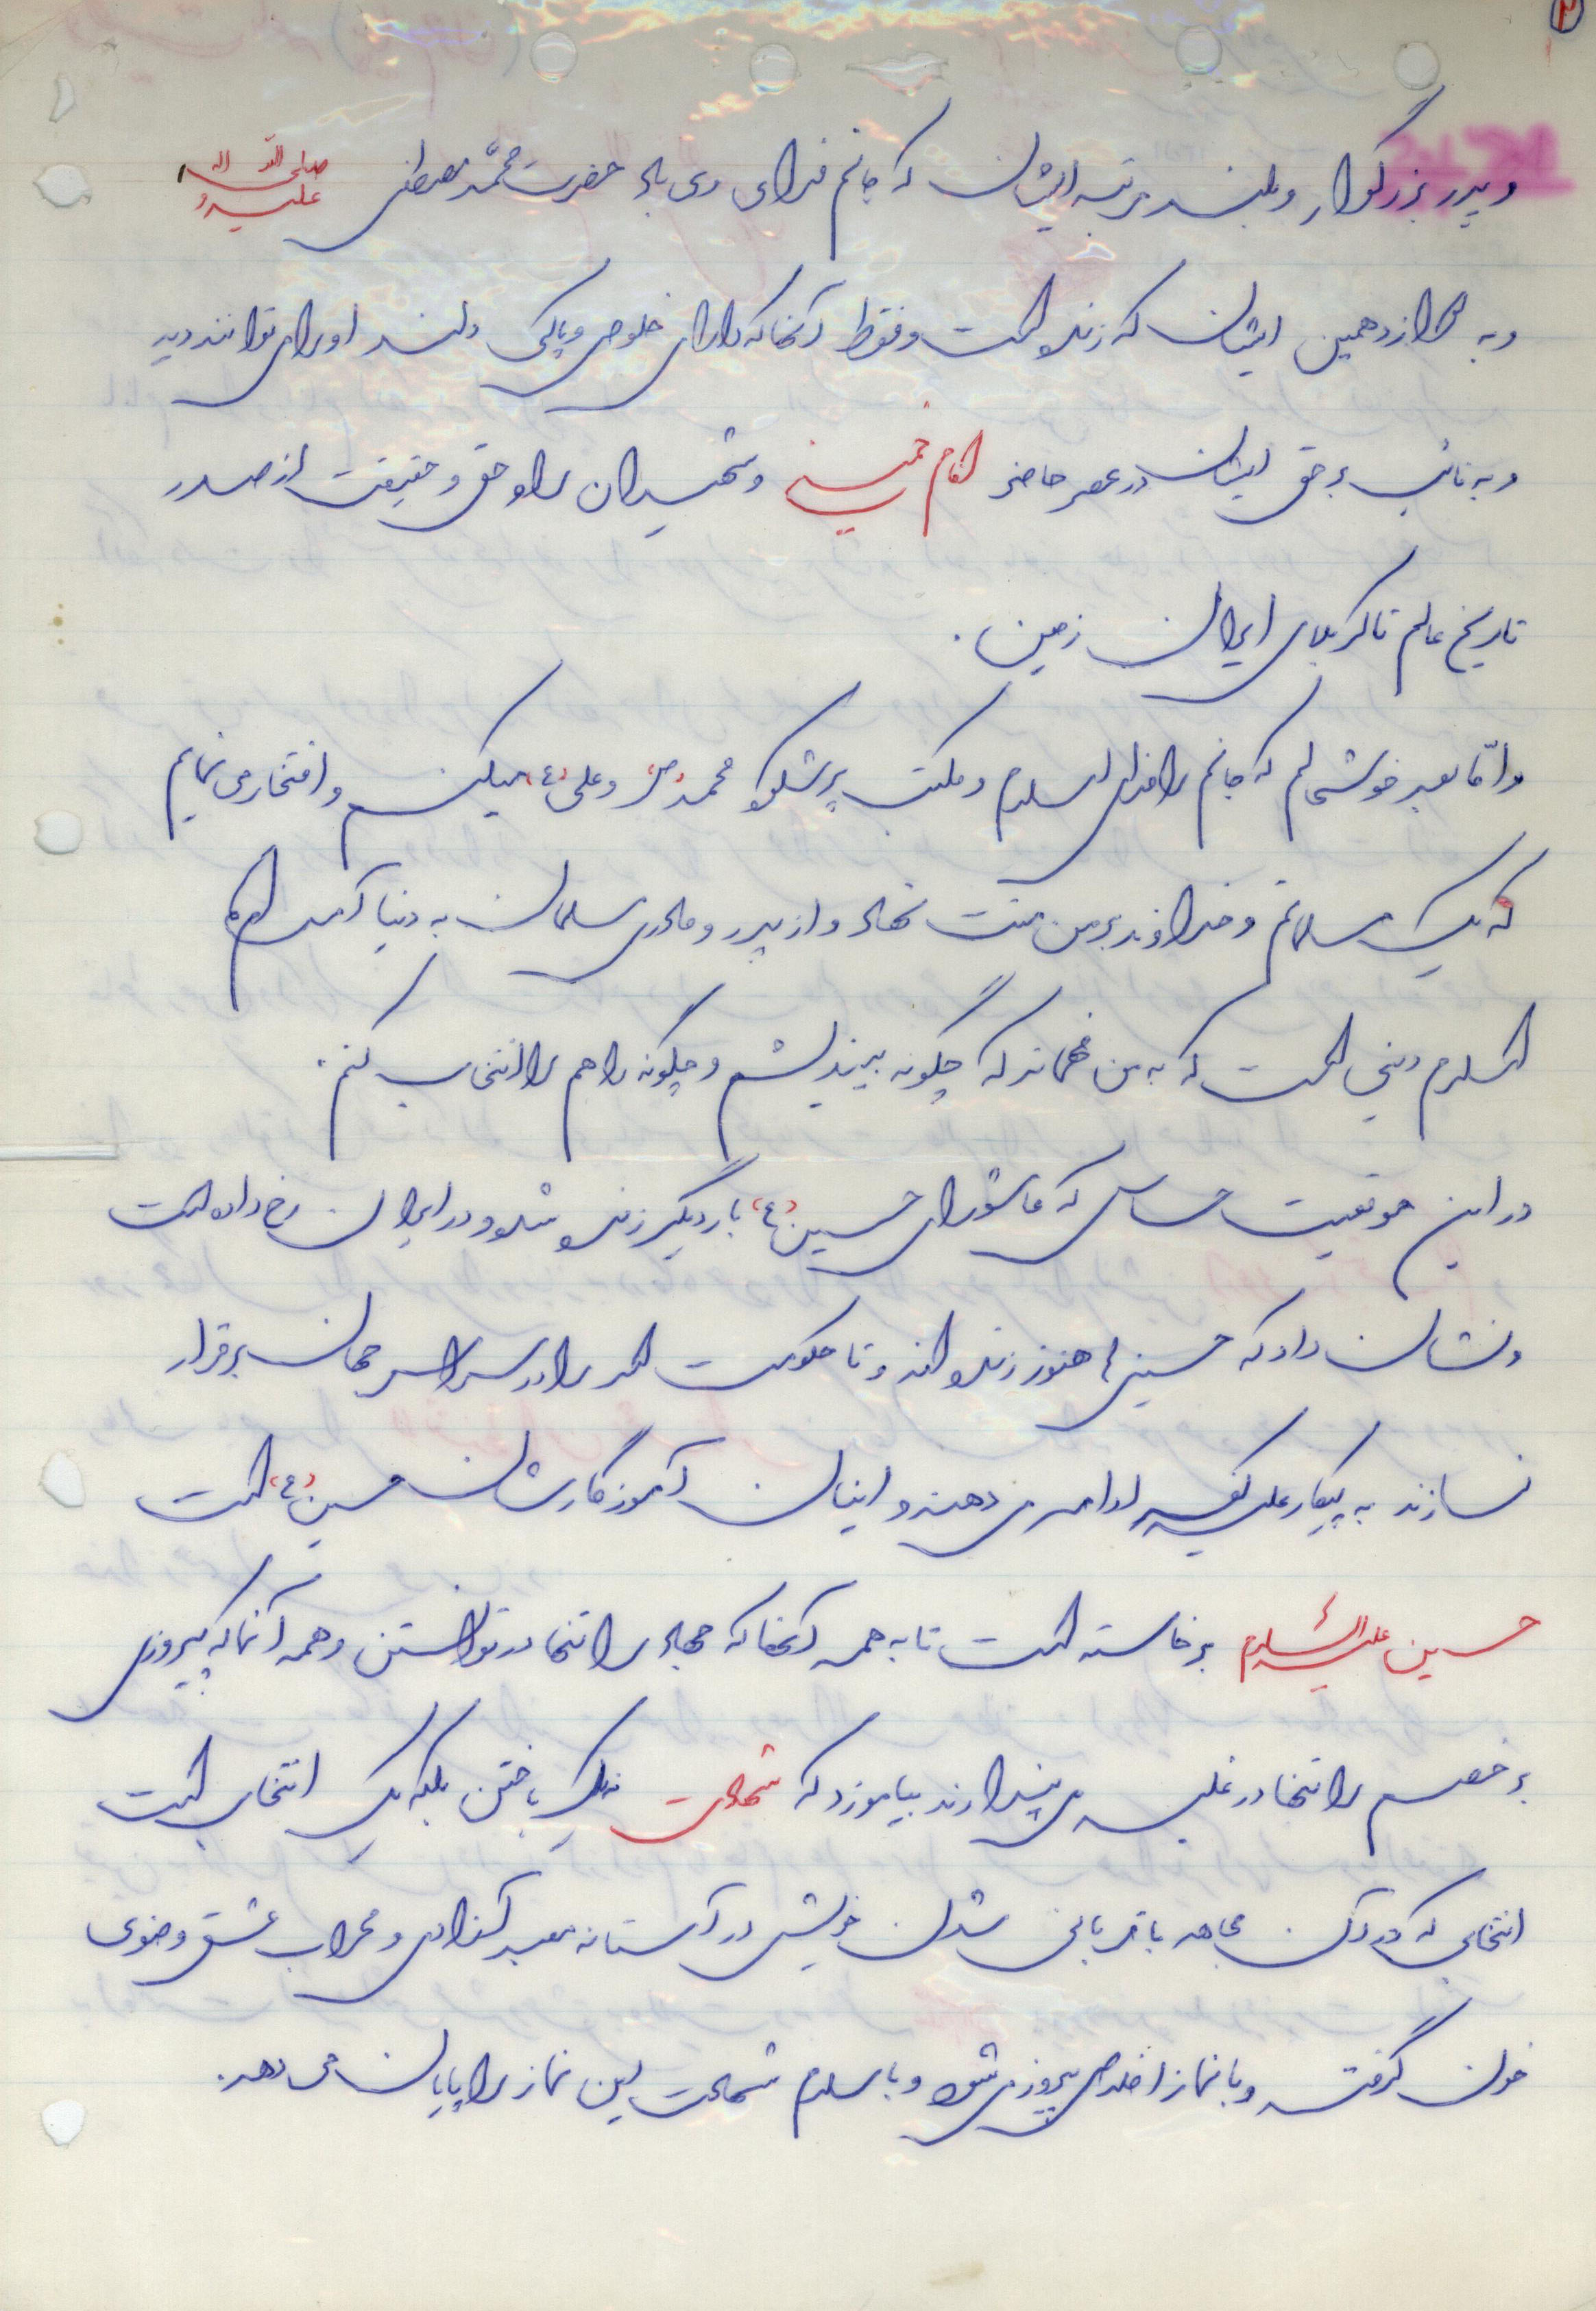 ۲
و پدر بزرگوار و بلند مرتبه ایشان که جانم فدای وی باد حضرت محمّد مصطفی صلی الله علیه و اله
و به دوازدهمین ایشان که زنده است و فقط آنها که دارای خلوص و پاکی دلند او را می توانند دید
و به نائب بر حق ایشان در عصر حاضر امام خمینی و شهیدان راه حق و حقیقت از صدر
تاریخ عالم تا کربلای ایران زمین.
و امّا بعد خوشحالم که جانم را فدای اسلام و مکتب پرشکوه محمد «ص» و علی «ع» میکنم و افتخار می نمایم
که یک مسلمانم و خداوند بر من منت نهاد و از پدر و مادری مسلمان به دنیا آمده ام
اسلام دینی است که به من فهماند که چگونه بیندیشم و چگونه راهم را انتخاب کنم.
در این موقعیت حساس که عاشورای حسین «ع» بار دیگر زنده شده و در ایران رخ داده است
و نشان داد که حسینی ها هنوز زنده اند و تا حکومت الله را در سراسر جهان برقرار
نسازند به پیکار علیه کفر ادامه می دهند و اینان آموزگارشان حسین «ع» است
حسین علیه السلام برخاسته است تا به همه آنها که جهاد را تنها در توانستن و همه آنها که پیروزی
بر خصم را تنها در غلبه می پندارند بیاموزد که شهادت نه یک باختن بلکه یک انتخاب است
انتخابی که در آن مجاهد با قربانی شدن خویش در آستانه معبد آزادی و محراب عشق وضوی
خون گرفته و با نماز اخلاص پیروز می شود و با سلام شهادت این نماز را پایان می دهد.